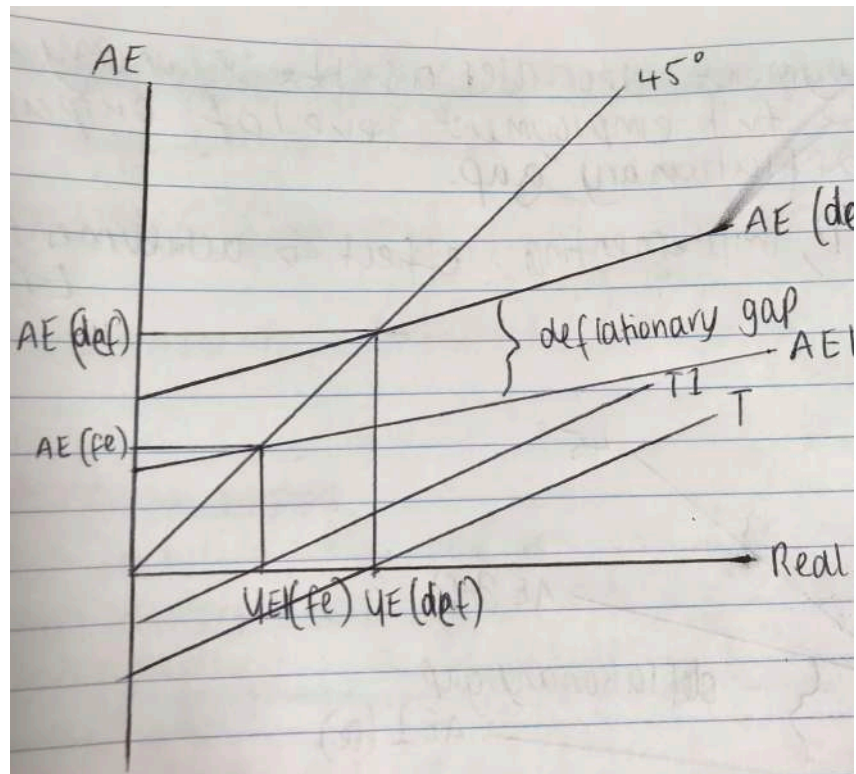 AE
45°
AE (de
AE (def)
deflationary gap
AE1
T1
T
AE (fe)
Real
YE1(fe) YE(def)